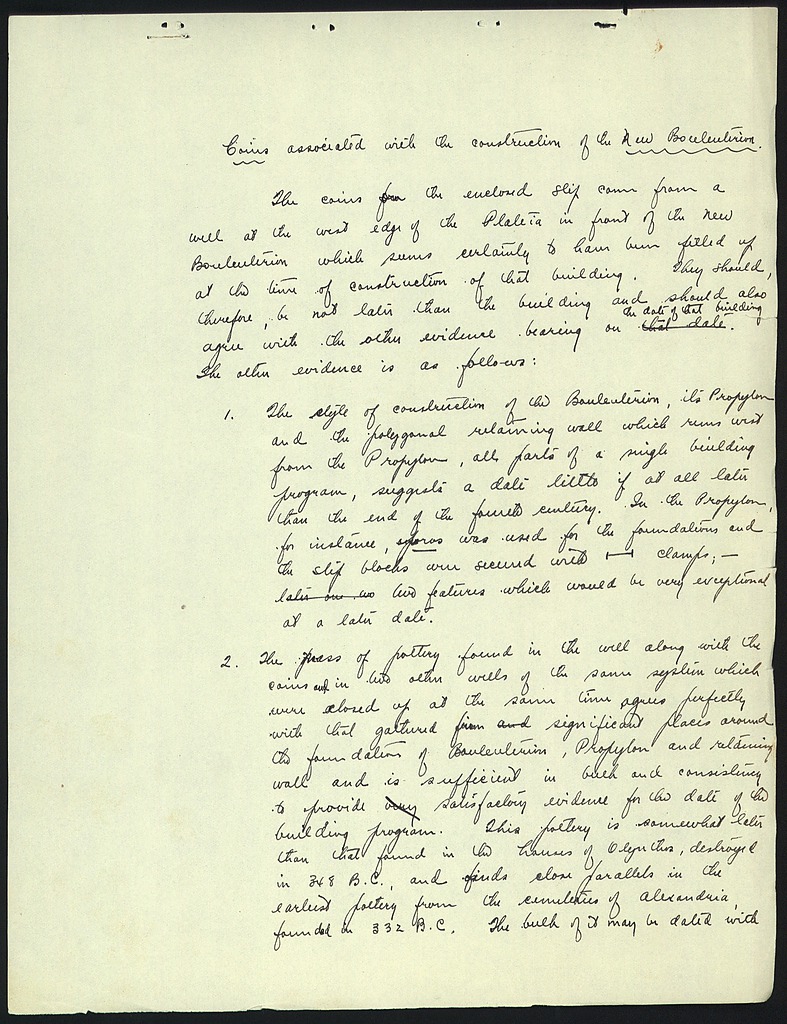 Coins associated with the construction of the New Bouleuterion.
The coins from the enclosed slip come from a
well at the west edge of the Plateia in front of the New
Bouleuterion which seems certainly to have been filled up
at the time of construction of that building. They should,
therefore, be not later than the building and should also
agree with the other evidence bearing on that date. the date of that building
The other evidence is as follows:
1. The style of construction of the Bouleuterion, its Propylon
and the polygonal retaining wall which runs west
from the Propylon, all parts of a single building
program, suggests a date little if at all later
than the end of the fourth century. In the Propylon,
for instance, poros was used for the foundations and
the step blocks were secured with ⊢⊣ clamps; —
later two features which would be very exceptional
at a later date.
2. The mass of pottery found in the well along with the
coins and in two other wells of the same system which
were closed up at the same time agrees perfectly
with that gathered from and significant places around
the foundations of Bouleuterion, Propylon and retaining
wall and is sufficient in bulk and consistency
to provide very satisfactory evidence for the date of the
building program. This pottery is somewhat later
than that found in the houses of Olynthos, destroyed
in 348 B.C., and finds close parallels in the
earliest pottery from the cemeteries of Alexandria,
founded in 332 B.C. The bulk of it may be dated with